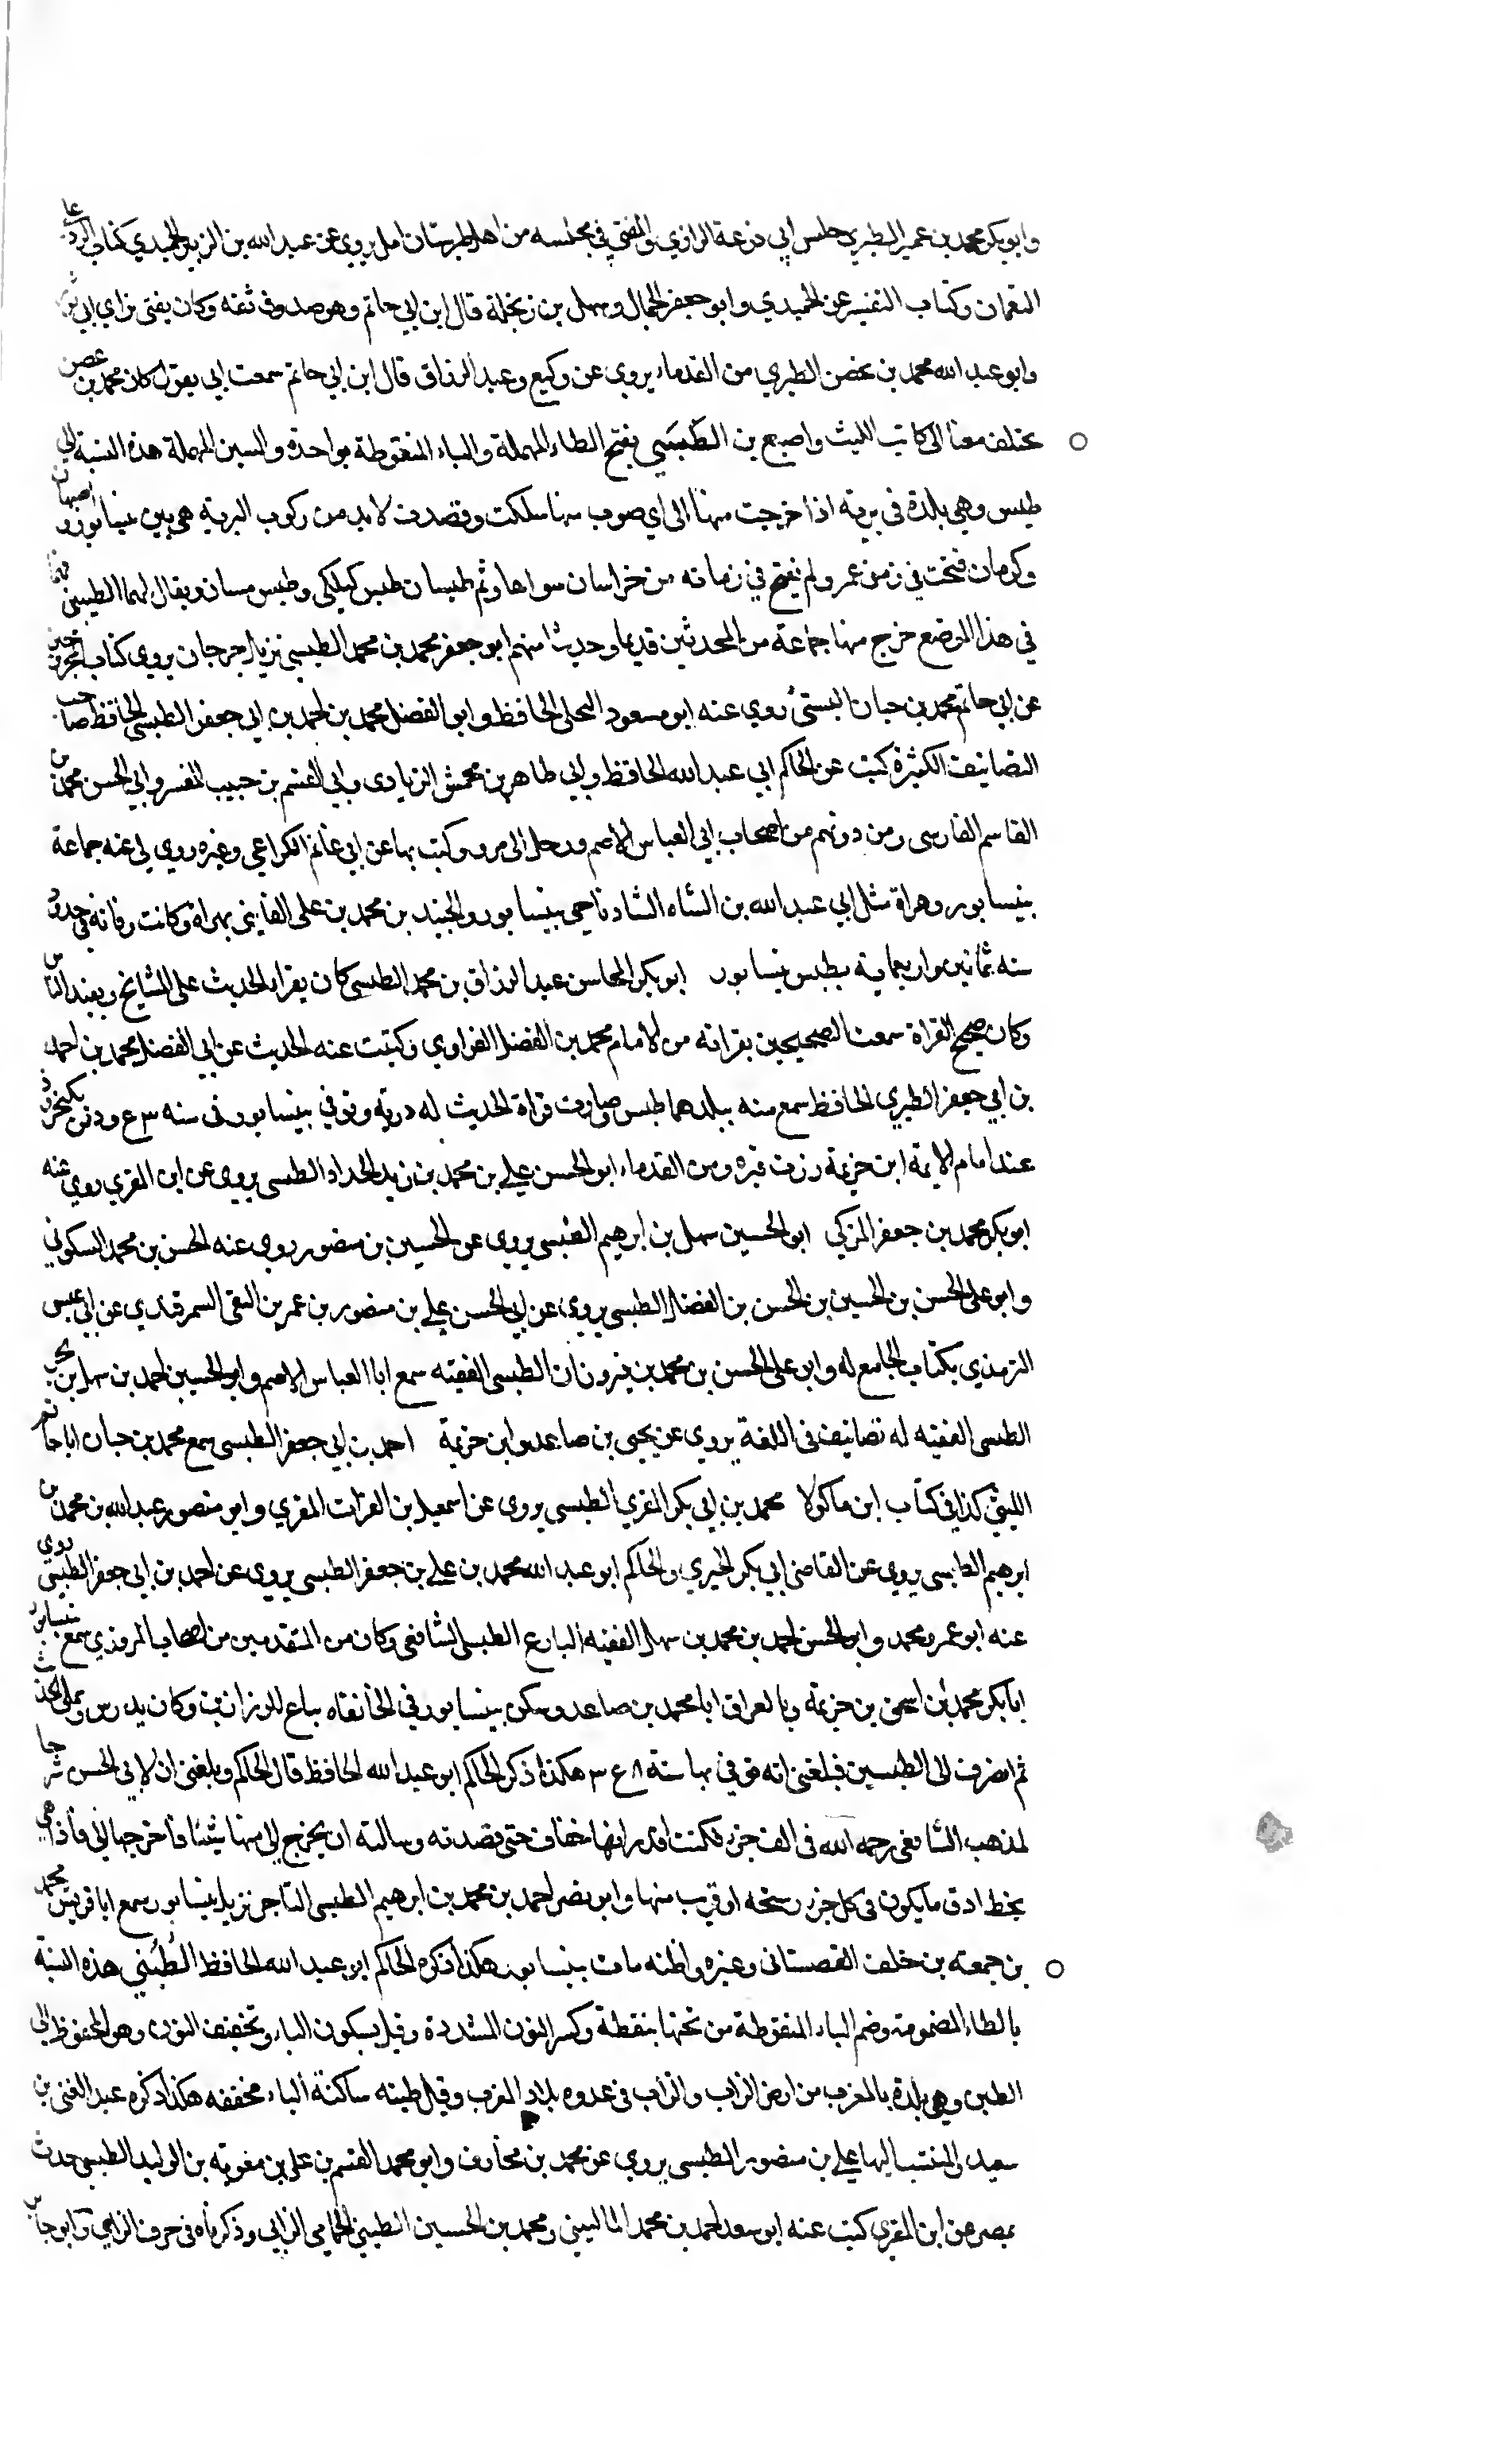 وابو بكر محمد بن عمير الطبري جليس ابي زرعة الرازي والمفتي في مجلسه من اهل طبرستان امل يروي عن عبد الله بن الزبير الحميدي كتاب الرد على
النعمان وكتاب التفسير عن الحميدي وابو جعفر الجمال وسهل بن زنجلة قال ابن ابي حاتم وهو صدوق ثقه وكان يفتي براي ابي ثور
وابو عبد الله محمد بن غصن الطبري من القدماء يروي عن وكيع وعبد الرزاق قال ابن ابي حاتم سمعت ابي يقول كان محمد بن غصن
يختلف معنا الى كاتب الليث واصبع بن الطَبَسَي بفتح الطاء المهملة والباء المنقوطة بواحدة والسين المهملة هذه النسبة الى
طبس وهي بلدة في برية اذا خرجت منها الى اي صوب منها سلكت وقصدت لا بد من ركوب البرية هي بين نيسابور واصبهان
وكرمان فتحت في زمن عمر ولم يفتح في زمانه من خراسان سواها وثم طبسان طبس كيلكي وطبس مسان ويقال لهما الطبسين فهما
في هذا الموضع خرج منها جماعة من المحدثين قديما وحديثا منهم ابو جعفر محمد بن محمد الطبسي نزيل جرجان يروي كتاب المجروحين
عن ابي حاتم محمد بن حبان البستي روي عنه ابو مسعود البجلي الحافظ وابو الفضل محمد بن احمد بن ابي جعفر الطبسي الحافظ صاحب
التصانيف الكثيرة كتب عن الحاكم ابي عبد الله الحافظ وابي طاهر بن محمش الزيادي وابي القسم بن حبيب المفسر وابي الحسن محمد بن
القاسم الفارسي ومن دونهم من اصحاب ابي العباس الاصم ورحل الى مرو وكتب بها عن ابي غانم الكراعي وغيره روي لي عنه جماعة
بنيسابور وهراة مثل ابي عبد الله بن الشاه الشادياخي بنيسابور والجنيد بن محمد بن علي القايني بهراة وكانت وفاته في حدود
سنه ثمانين واربعماية بطبس نيسابور ابو بكر المحاسن عبد الرزاق بن محمد الطبسي كان يقرا الحديث على المشايخ ويفيد الناس
وكان صحيح القراة سمعت الصحيحين بقراته من الامام محمد بن الفضل الفراوي وكتبت عنه الحديث عن ابي الفضل محمد بن احمد
بن ابي جعفر الطبري الحافظ سمع منه ببلدهما طبس وصارت قراة الحديث له دربة وتوفي بنيسابور في سنه ٣ع ودفن
عند امام الايمة ابن خزيمة زرت قبره ومن القدماء ابو الحسن علي بن محمد بن زيد الحداد الطبسي يروي عن ابن المقري روي عنه
ابو بكر محمد بن جعفر المزكي ابو الحسين سهل بن ابرهيم الطبسي يروي عن الحسين بن منصور روي عنه الحسن بن محمد السكوني
وابو علي الحسن بن الحسين بن الحسن بن الفضل الطبسي يروي عن ابي الحسن علي بن منصور بن عمر بن التقي السمرقندي عن ابي عيسى
الترمذي بكتاب الجامع له وابو علي الحسن بن محمد بن فيروزان الطبسي الفقيه سمع ابا العباس الاصم وابو الحسين احمد بن سهل بن بحر
الطبسي الفقيه له تصانيف في اللغة يروي عن يحيى بن صاعد وابن خزيمة احمد بن ابي جعفر الطبسي سمع محمد بن حبان ابا حاتم
كذا في كتاب ابن ماكولا محمد بن ابي بكر المقري الطبسي يروي عن اسمعيل بن الفرات المقري وابو منصور عبد الله بن محمد بن
ابرهيم الطبسي يروي عن القاضي ابي بكر الحيري والحاكم ابو عبد الله محمد بن علي بن جعفر الطبسي يروي عن احمد بن ابي جعفر الطبسي روي
عنه ابو عمرو محمد وابو الحسن احمد بن محمد بن سهل الفقيه البارع الطبسي الشافعي وكان من المتقدمين من اصحاب المروزي سمع بنيسابور
ابا بكر محمد بن اسحق بن خزيمة وبالعراق ابا محمد بن صاعد وسكن بنيسابور في الخانقاه وكان يدرس ويملي الحديث
ثم انصرف الى الطبسين فبلغني انه توفي بها سنة ٨ع٣ هكذا ذكر الحاكم ابو عبد الله الحافظ قال الحاكم وبلغني ان لابي الحسن شرحا
لمذهب الشافعي رحمه الله في الف جزء فكنت اقدر انها خفاف حتى قصدته وسالته ان يخرج الي منها شيئا فاخرجها الي فاذا هي
بخط ادق ما يكون في كل جزء دستجه او قريب منها وابو نصر احمد بن محمد بن ابرهيم الطبسي التاجر نزيل نيسابور سمع ابا قريش محمد
بن جمعه بن خلف القهستاني وغيره واظنه مات بنيسابور هكذا ذكره الحاكم ابو عبد الله الحافظ الطُبُنّي هذه النسبة
بالطاء المضمومة وضم الباء المنقوطة من تحتها بنقطة وكسر النون المشددة وقيل بسكون الباء وتخفيف النون وهو المحفوظ الى
الطبن وهي بلدة بالمغرب من ارض الزاب والزاب في عدوه بلاد المغرب وقيل طبنه ساكنة الباء مخففه هكذا ذكره عبد الغني بن
سعيد والمنتسب اليها علي بن منصور الطبسي يروي عن محمد بن مخارق وابو محمد القسم بن علي بن معوية بن الوليد الطبسي حدث
بمصر عن ابن المقري كتب عنه ابو سعد احمد بن محمد الماليني ومحمد بن الحسين الطبني الحمامي الزابي وذكرناه في حرف الزاي وابو